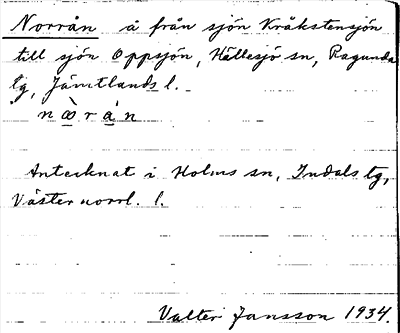 Norrån å från sjön Kråkstensjön
till sjön Oppsjön, Hällesjö sn, Ragunda
tg, Jämtlands l.
nò̤rá̤n
Antecknat i Holms sn, Indals tg,
Västernorrl. l.
Valter Jansson 1934.